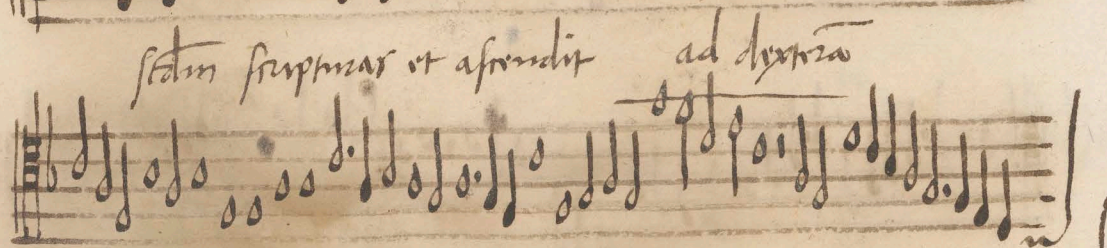 scdm scripturas et ascendit ad dexterā